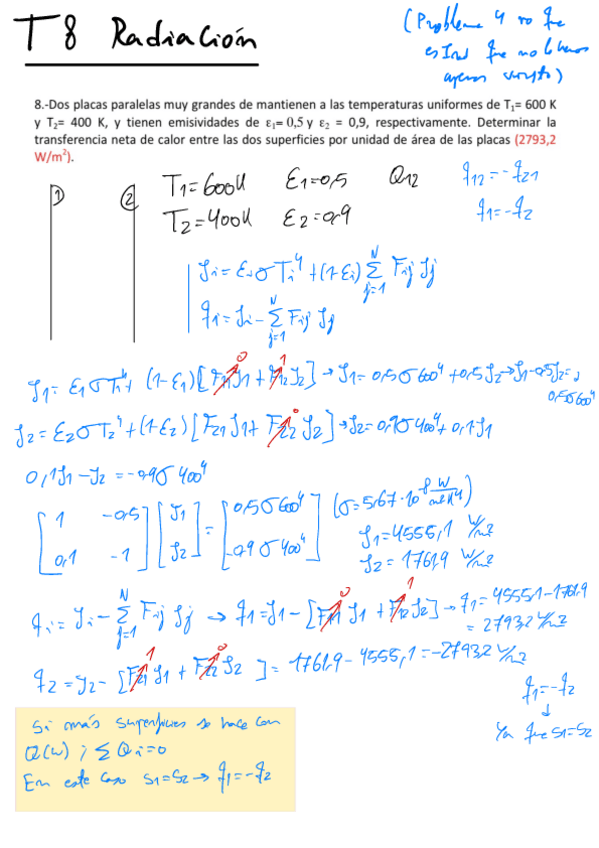 T8 Radiación
(Problema 4 no que
es Ind que no lo hemos
apenas visto)
8.-Dos placas paralelas muy grandes de mantienen a las temperaturas uniformes de T₁= 600 K
y T₂= 400 K, y tienen emisividades de ε₁= 0,5 y ε₂ = 0,9, respectivamente. Determinar la
transferencia neta de calor entre las dos superficies por unidad de área de las placas (2793,2
W/m²).
1) 2)
T1=600K ε1=0,5 Q12 q12=-q21
T2=400K ε2=0,9 q1=-q2
Ji = εi σ Ti⁴ + (1-εi) Σ Fij Jj
N
j=1
qi = Ji - Σ Fij Jj
N
j=1
J1 = ε1 σ T1⁴ + (1-ε1) [F11 J1 + F12 J2] → J1 = 0,5σ600⁴ + 0,5 J2 → J1-0,5J2 =
0 1
0,5σ600⁴
J2 = ε2 σ T2⁴ + (1-ε2) [F21 J1 + F22 J2] → J2 = 0,9σ400⁴ + 0,1 J1
0
0,1 J1 - J2 = -0,9 σ 400⁴
[1 -0,5] [J1] = [0,5 σ 600⁴] (σ = 5,67·10⁻⁸ W/m²K⁴)
[0,1 -1] [J2] [-0,9 σ 400⁴]
J1 = 4555,1 W/m²
J2 = 1761,9 W/m²
qi = Ji - Σ Fij Jj → q1 = J1 - [F11 J1 + F12 J2] → q1 = 4555,1 - 1761,9
N
j=1
0 1
= 2793,2 W/m²
q2 = J2 - [F21 J1 + F22 J2] = 1761,9 - 4555,1 = -2793,2 W/m²
1 0
q1 = -q2
↓
Ya que S1=S2
Si más superficies se hace con
Q(W) ; Σ Qi = 0
En este caso S1=S2 → q1 = -q2